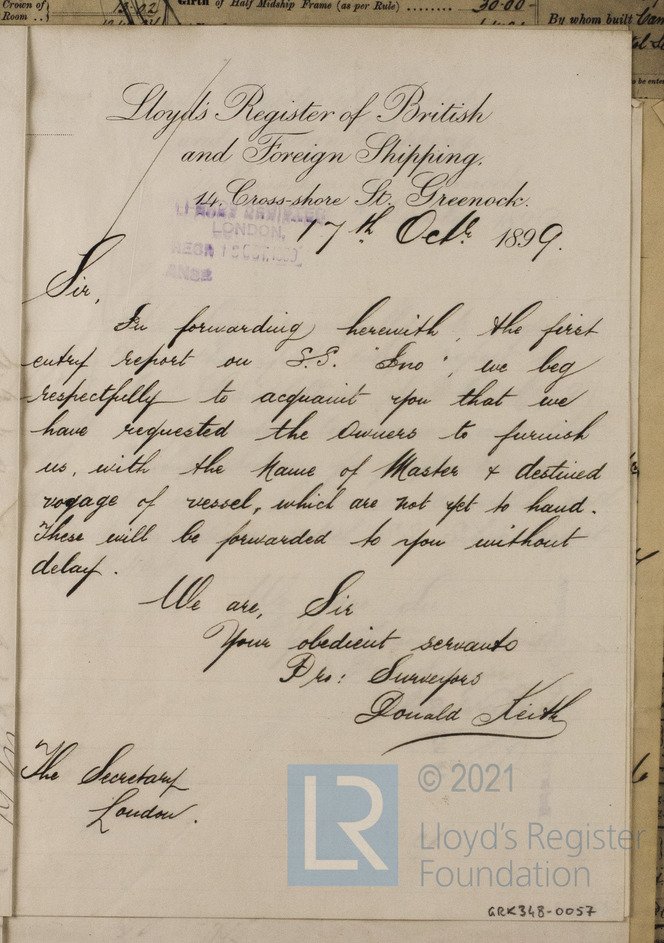 Crown of
Room ..
13.02
Girth of Half Midship Frame (as per Rule) ........
30.00
By whom built
Lloyd's Register of British
and Foreign Shipping.
14, Cross-shore St. Greenock.
LONDON,
17th Octr. 1899.
Sir,
In forwarding herewith, the first
entry report on S.S. 'Ino', we beg
respectfully to acquaint you that we
have requested the Owners to furnish
us, with the Name of Master & destined
voyage of vessel, which are not yet to hand.
These will be forwarded to you without
delay.
We are, Sir
Your obedient servants
Pro: Surveyors
Donald Keith
The Secretary
London.
LR
© 2021
Lloyd's Register
Foundation
GRK348-0057